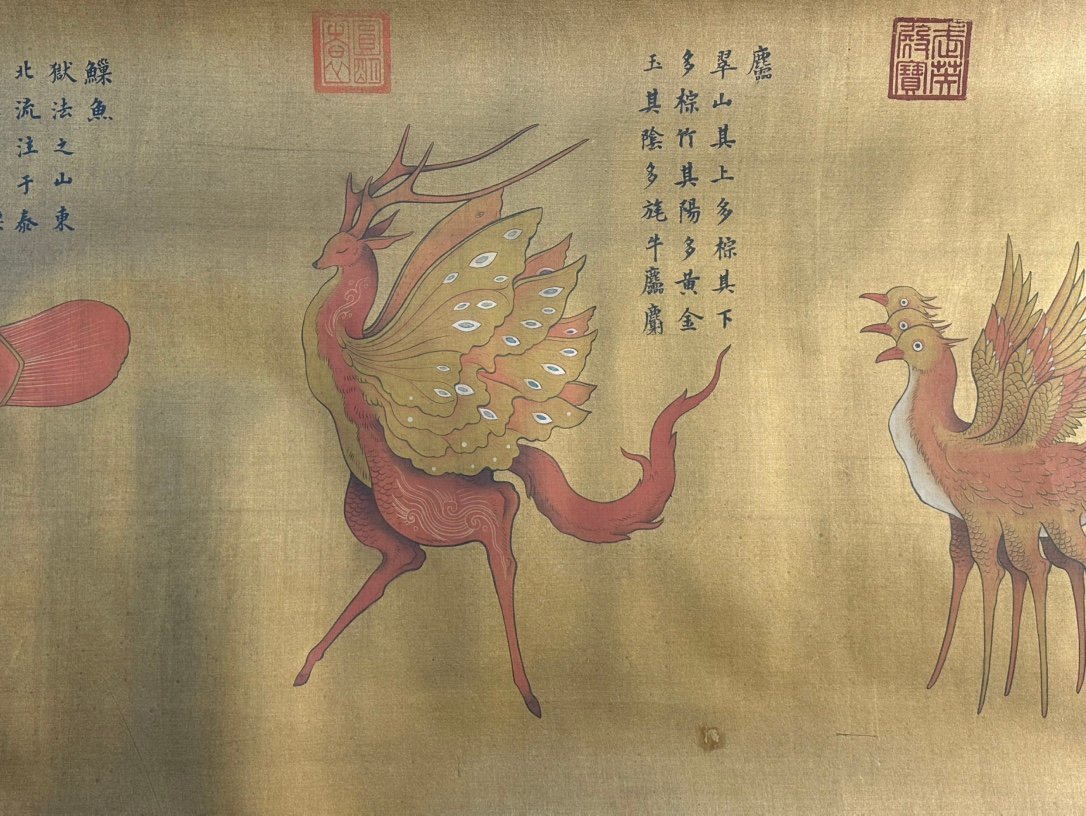 武英
殿寶
麢
翠山其上多棕其下
多棕竹其陽多黃金
玉其陰多旄牛麢麝
䲃魚
獄法之山東
北流注于泰